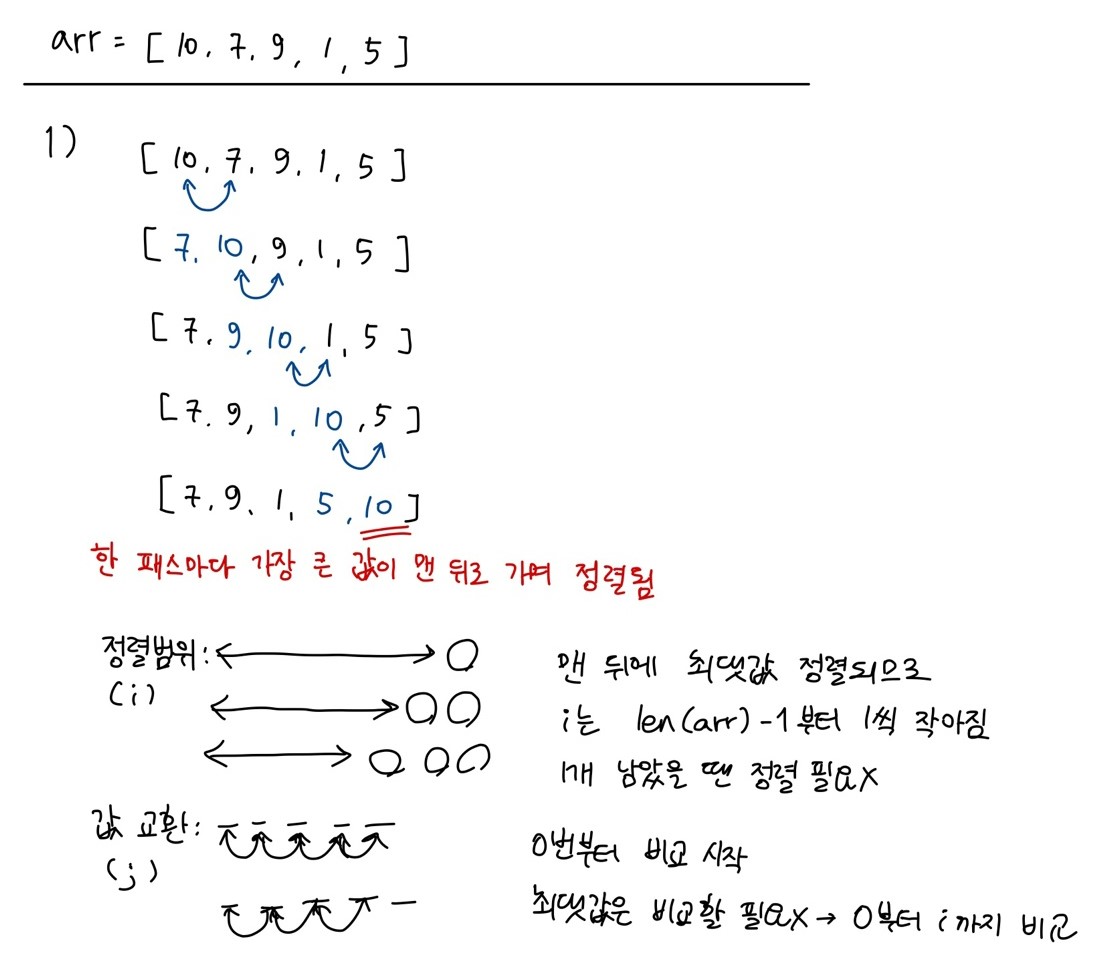 arr = [ 10, 7, 9, 1, 5 ]
1)
[ 10, 7, 9, 1, 5 ]
[ 7, 10, 9, 1, 5 ]
[ 7, 9, 10, 1, 5 ]
[ 7, 9, 1, 10, 5 ]
[ 7, 9, 1, 5, 10 ]
한 패스마다 가장 큰 값이 맨 뒤로 가며 정렬됨
정렬범위:
(i)
맨 뒤에 최댓값 정렬되므로
i는 len(arr)-1부터 1씩 작아짐
1개 남았을 땐 정렬 필요X
값 교환:
(j)
0번부터 비교 시작
최댓값은 비교할 필요X → 0부터 i까지 비교